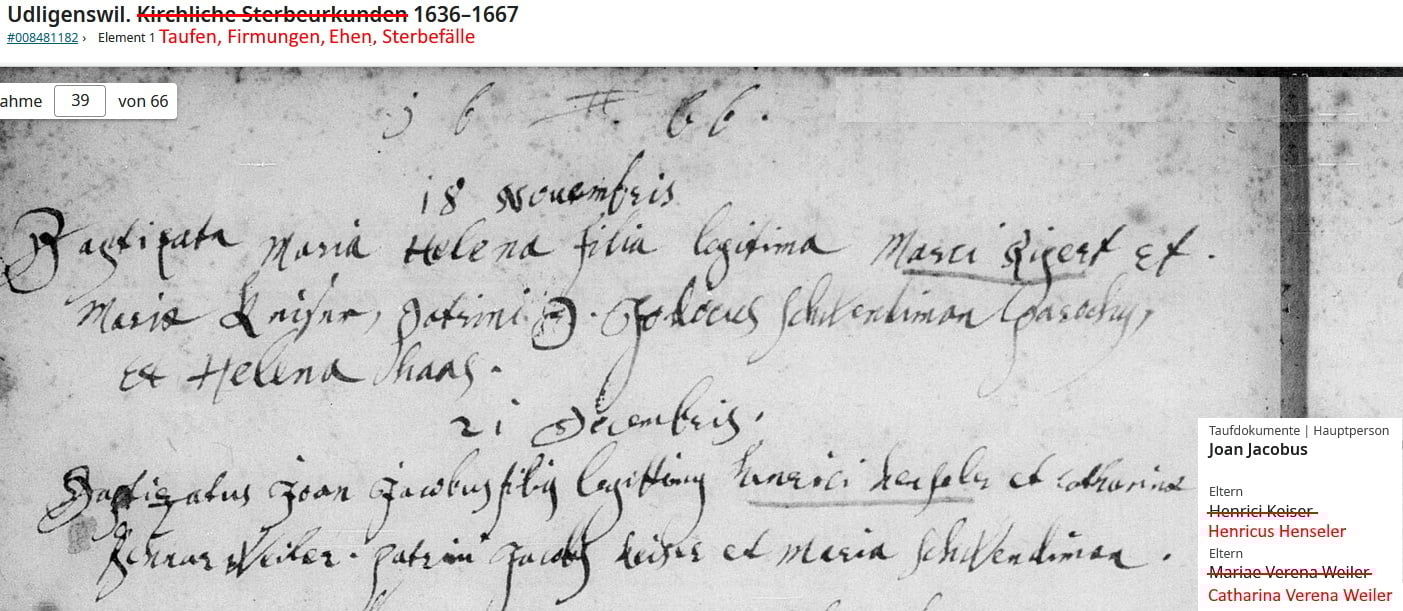 Udligenswil. Kirchliche Sterbeurkunden 1636–1667
#008481182 › Element 1 Taufen, Firmungen, Ehen, Sterbefälle
ahme 39 von 66
18 Novembris
Baptizata Maria Helena filia legitima Marci Rigert Et
Maria Keiser, patrini D. Jodocus Schwendiman parochus,
Et Helena Haas.
21 Decembris.
Baptizatus Joan Jacobus filius legittimus Henrici et Catharina
Weiler. patrini Jacobus Keiser et Maria Schwendiman.
Taufdokumente | Hauptperson
Joan Jacobus
Eltern
Henrici Keiser
Henricus Henseler
Eltern
Mariae Verena Weiler
Catharina Verena Weiler